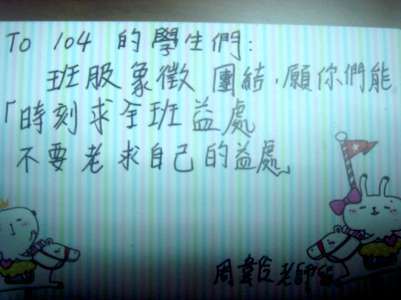 To 104 的學生們:
班服象徵 團結,願你們能
「時刻求全班益處
不要老求自己的益處」
周 老師